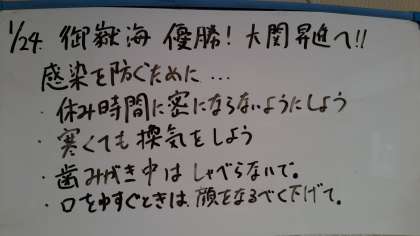 1/24. 御嶽海 優勝! 大関昇進へ!!
感染を防ぐために…
・休み時間に密にならないようにしよう
・寒くても換気をしよう
・歯みがき中はしゃべらないで。
・口をゆすぐときは、顔をなるべく下げて。